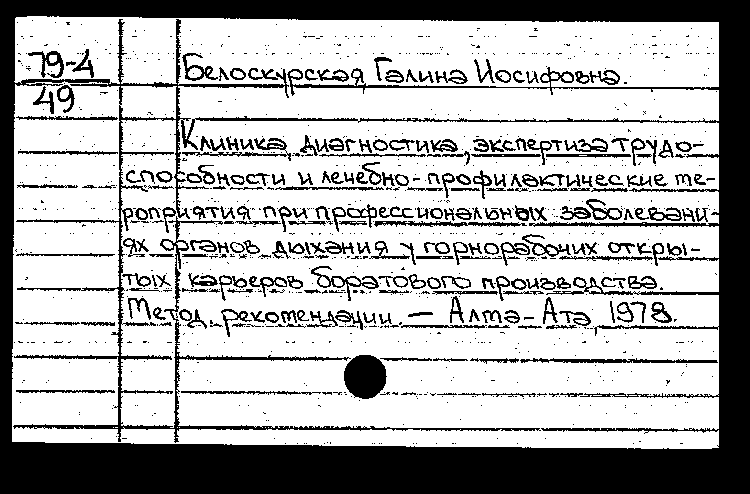 79-4
49
Белоскурская, Галина Иосифовна.
Клиника, диагностика, экспертиза трудо-
способности и лечебно-профилактические ме-
роприятия при профессиональных заболевани-
ях органов дыхания у горнорабочих откры-
тых карьеров боратового производства.
Метод. рекомендации. — Алма-Ата, 1978.